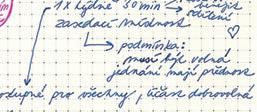 1x týdně 30min →
zasedací místnost
podmínka:
musí být volná
jednání mají přednost
pro všechny, účast dobrovolná